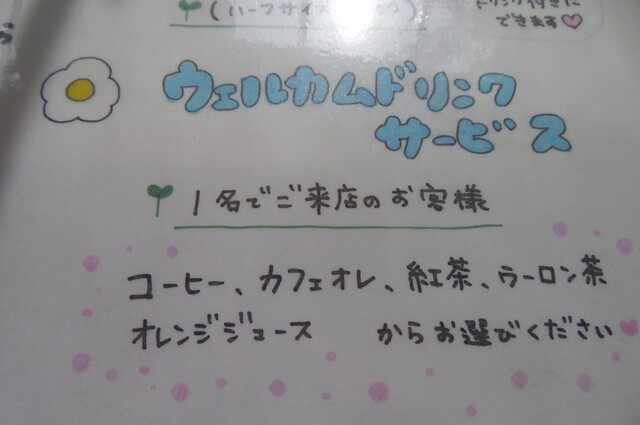 (ハーフサイズ
ドリンク付きに
できます
ウェルカムドリンク
サービス
1名でご来店のお客様
コーヒー、カフェオレ、紅茶、ウーロン茶
オレンジジュース からお選びください